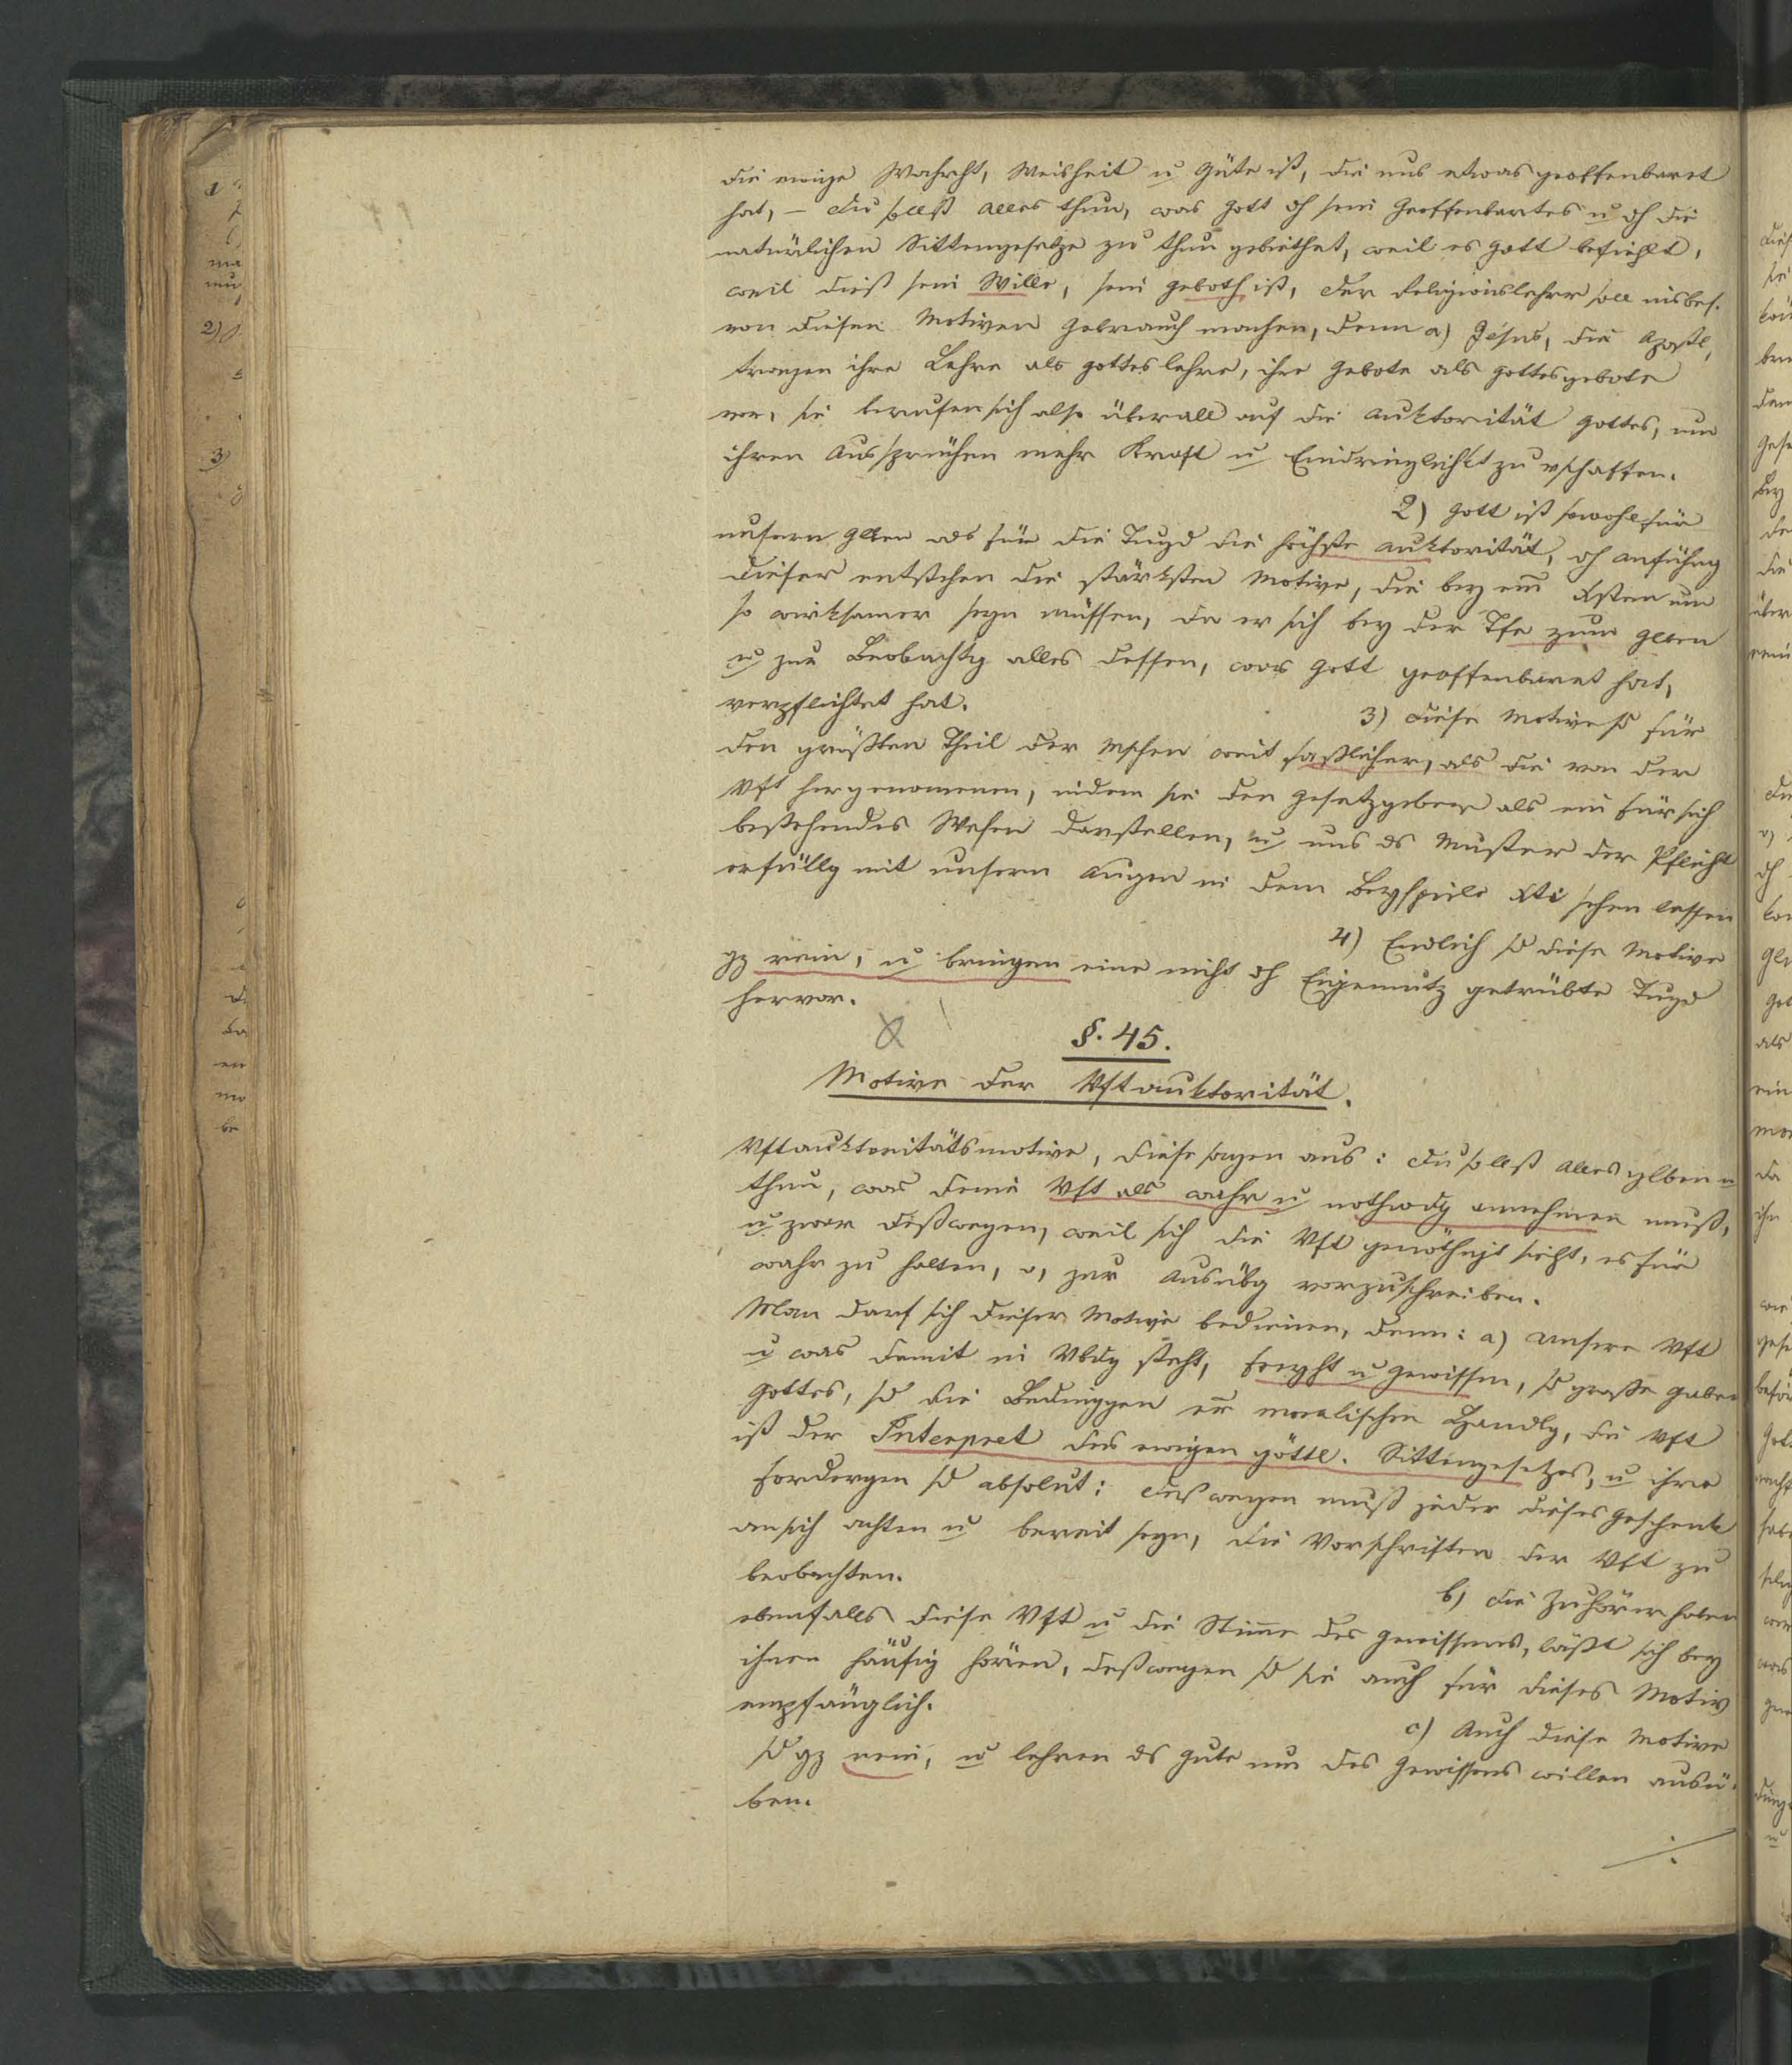 die ewige Wahrht, Weisheit u Güte ist, die uns etwas geoffenbaret
hat, – du sollst alles thun, was Gott dh sein Geoffenbartes u dh die
natürlichen Sittengesetze zu thun gebiethet, weil es Gott befiehlt,
weil dieß sein Wille, sein Geboth ist, der Religionslehrer soll insbes.
von diesen Motiven Gebrauch machen, denn a) Jesus, die Apostl,
tragen ihre Lehre als Gotteslehre, ihre Gebote als Gottesgebote
vor, sie berufen sich also überall auf die Auktorität Gottes, um
ihren Aussprüchen mehr Kraft u Eindringlichkt zu vschaffen.
2) Gott ist sowohl für
unsern Glben als für die Tugd die höchste Auktorität, dh Anführg
dieser entstehen die stärksten Motive, die bey ein Xsten um
so wirksamer seyn müssen, da er sich bey der Tfe zum Glben
u zur Beobachtg alles dessen, was Gott geoffenbaret hat,
verpflichtet hat.
3) Diese Motive sd für
den größten Theil der Mschen weit faßlicher, als die von der
Vft hergenomenen, indem sie den Gesetzgeber als ein für sich
bestehendes Wesen darstellen, u uns ds Muster der Pflicht
erfüllg mit unsern Augen in dem Beyspiele Xti sehen lassen
4) Endlich sd diese Motive
gz rein, u bringen eine nicht dh Eigennutz getrübte Tugd
hervor.
§. 45.
Motive der Vftauktorität.
Vftauktoritätsmotive, diese sagen aus: du sollst alles glben u
thun, was deine Vft als wahr u nothwdg annehmen muß,
u zwar deßwegen, weil sich die Vft genöthigt sieht, es für
wahr zu halten, o, zur Ausübg vorzuschreiben.
Man darf sich dieser Motive bedienen, denn: a) unsere Vft
u was damit in Vbdg steht, Freyht u Gewissen, sd große Gaben
Gottes, sd die Bedinggen er moralischen Handlg, die Vft
ist der Interpret des ewigen göttl. Sittengesetzes, u ihre
Fordergen sd absolut: deßwegen muß jeder dieses Geschenk
an sich achten u bereit seyn, die Vorschriften der Vft zu
beobachten.
b) die Zuhörer haben
ebenfalls diese Vft u die Stimme des Gewissens, läßt sich bey
ihnen häufig hören, deßwegen sd sie auch für dieses Motiv
empfänglich.
c) Auch diese Motive
sd gz rein, u lehren ds Gute um des Gewissens willen ausü-
ben.